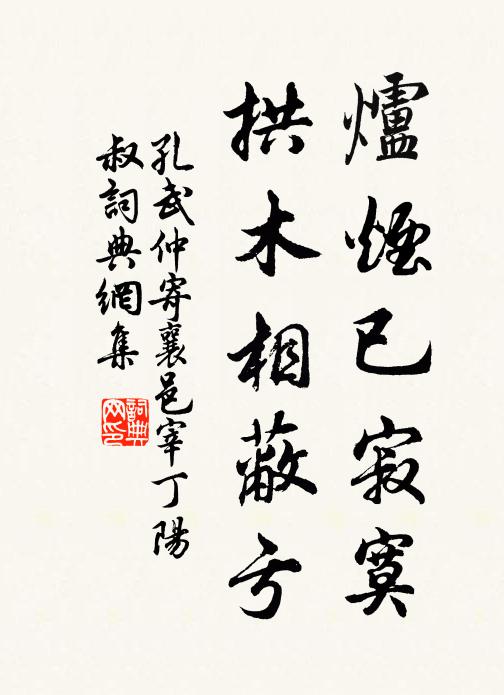 爐煙已寂寞
拱木相蔽虧
孔武仲寄襄邑宰丁陽
叔詞典網集
詞典
网印